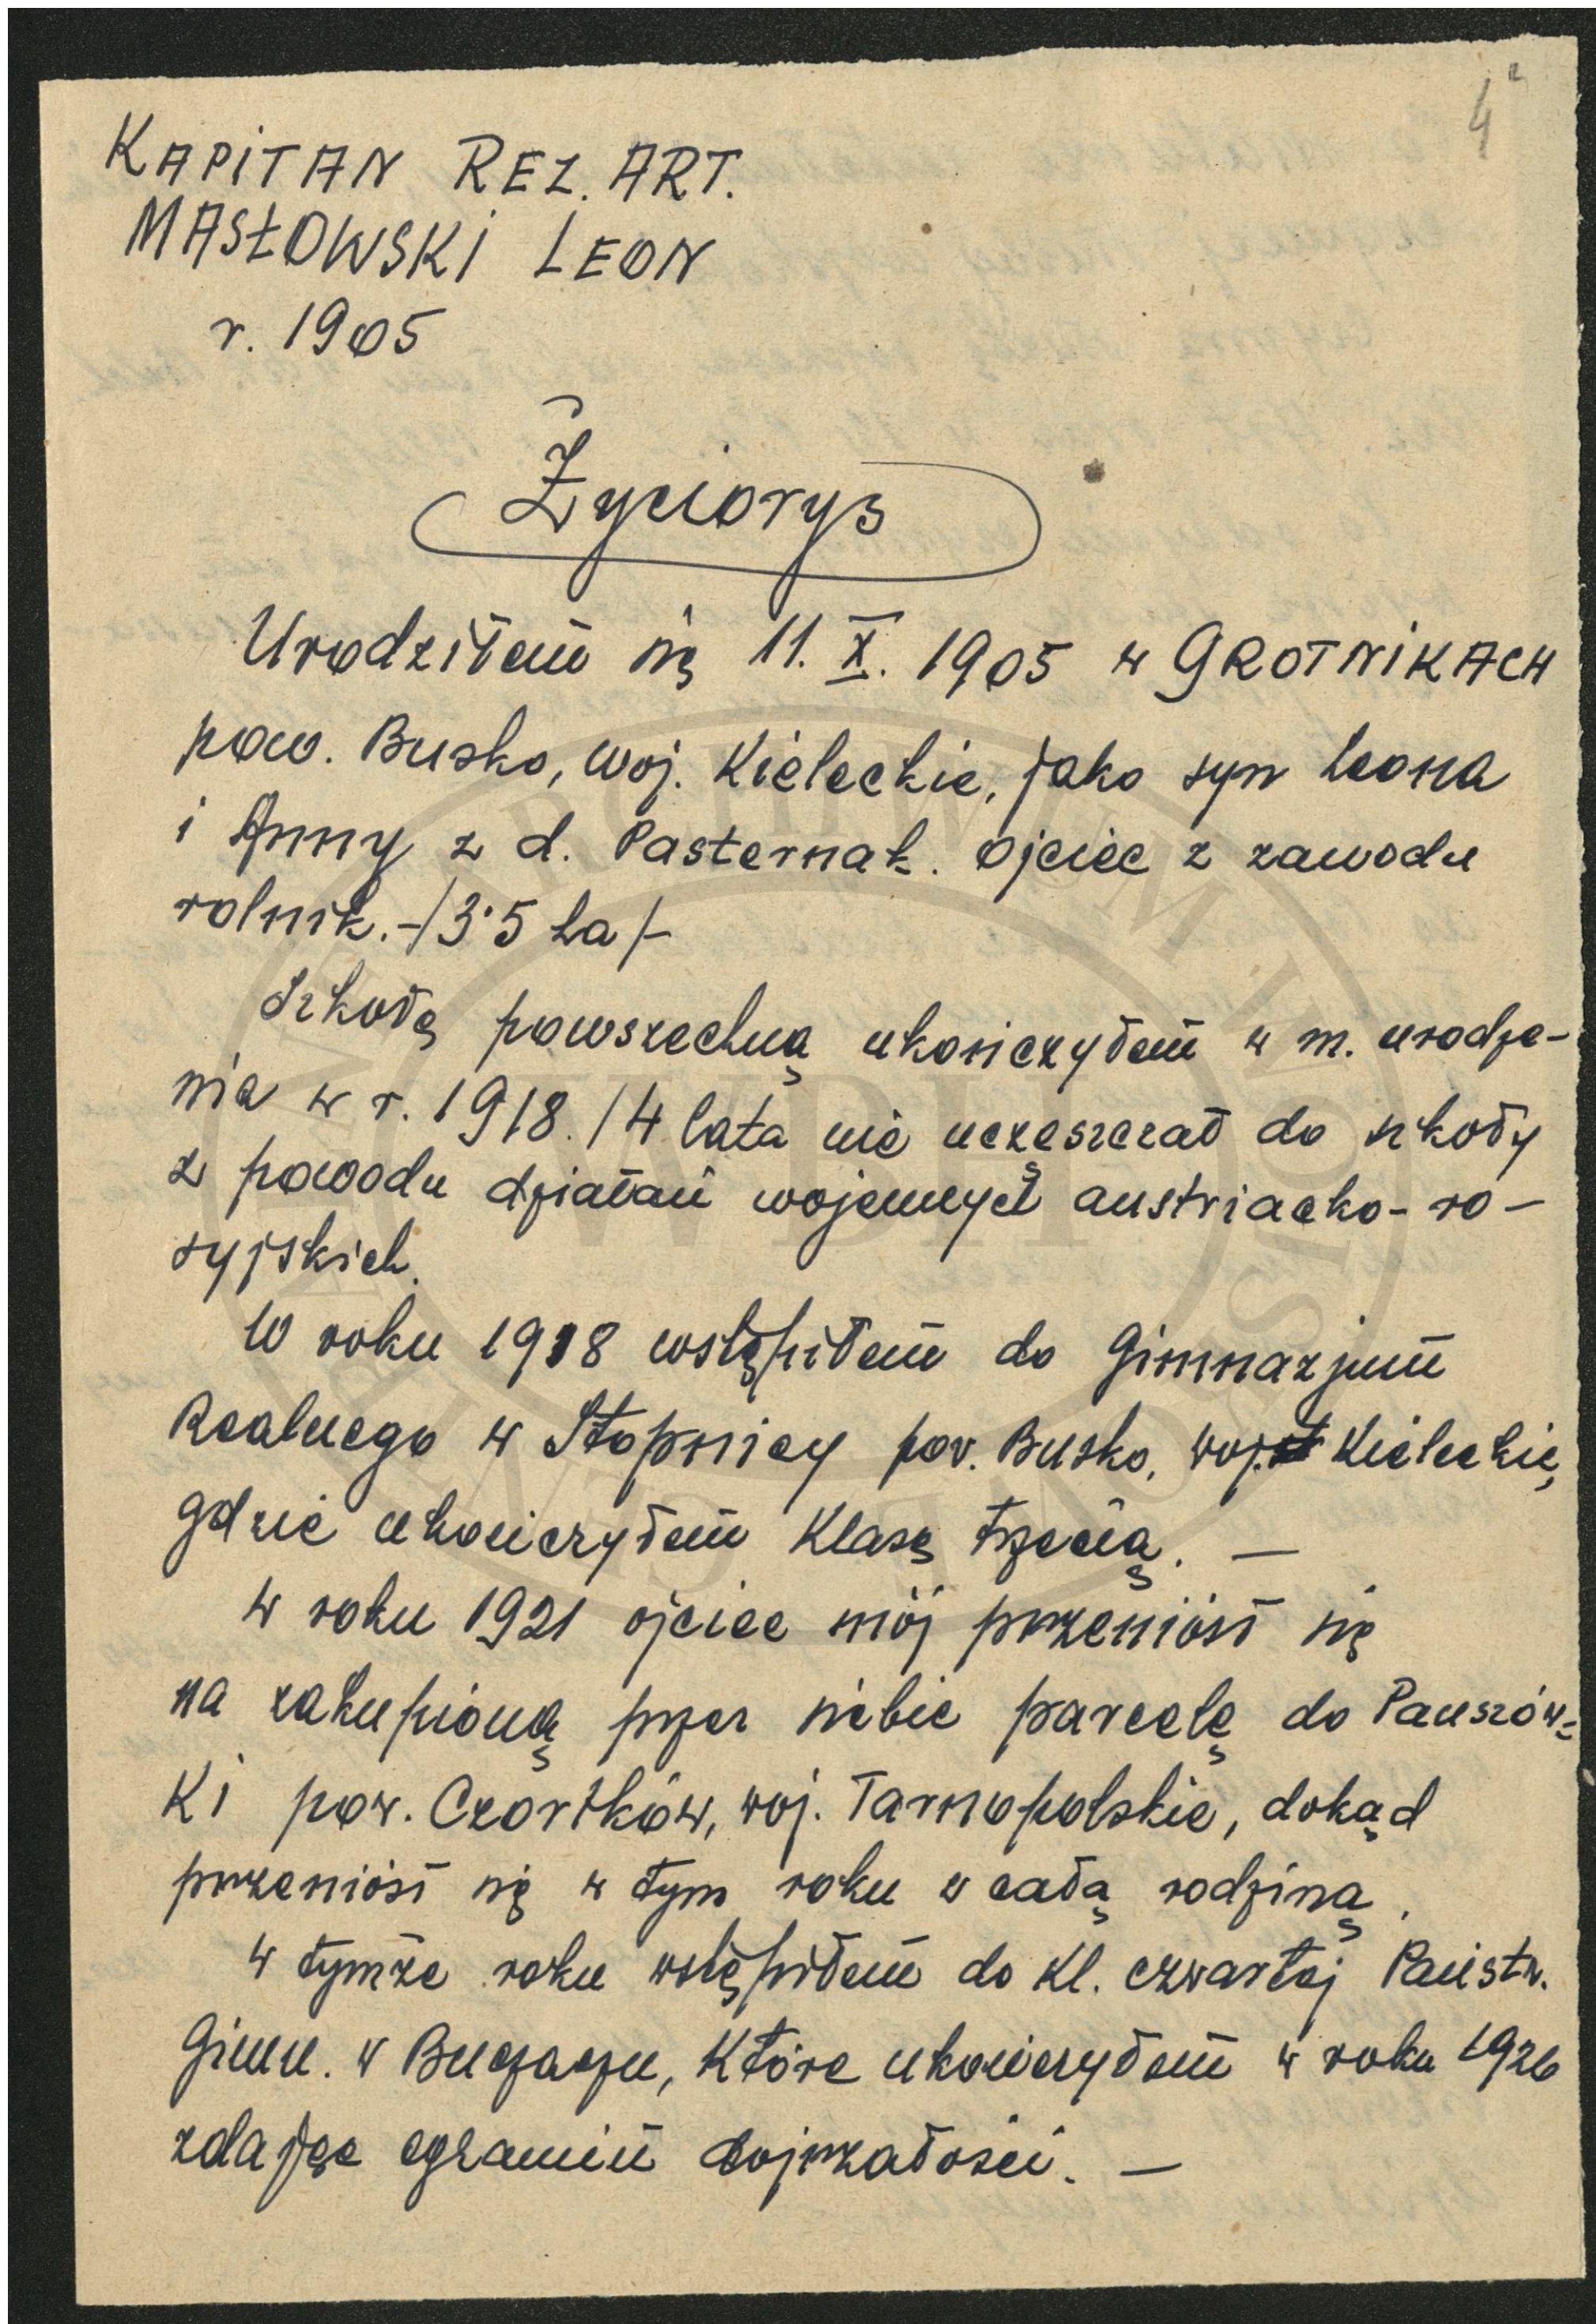 4
KAPITAN REZ. ART.
MASŁOWSKI LEON
r. 1905
Życiorys
Urodziłem się 11. X. 1905 w GROTNIKACH
pow. Busko, woj. Kieleckie, jako syn Leona
i Anny z d. Pasternak. Ojciec z zawodu
rolnik. -/3·5 ha/-
Szkołę powszechną ukończyłem w m. urodze-
nia w r. 1918. /4 lata nie uczęszczał do szkoły
z powodu działań wojennych austriacko-ro-
syjskich.
W roku 1918 wstąpiłem do Gimnazjum
Realnego w Stopnicy pow. Busko, woj. Kieleckie,
gdzie ukończyłem klasę trzecią. —
W roku 1921 ojciec mój przeniósł się
na zakupioną przez siebie parcelę do Pauszów-
ki pow. Czortków, woj. Tarnopolskie, dokąd
przeniósł się w tym roku z całą rodziną.
W tymże roku wstąpiłem do kl. czwartej Państw.
Gimn. w Buczaczu, które ukończyłem w roku 1926
zdając egzamin dojrzałości. —
WBH